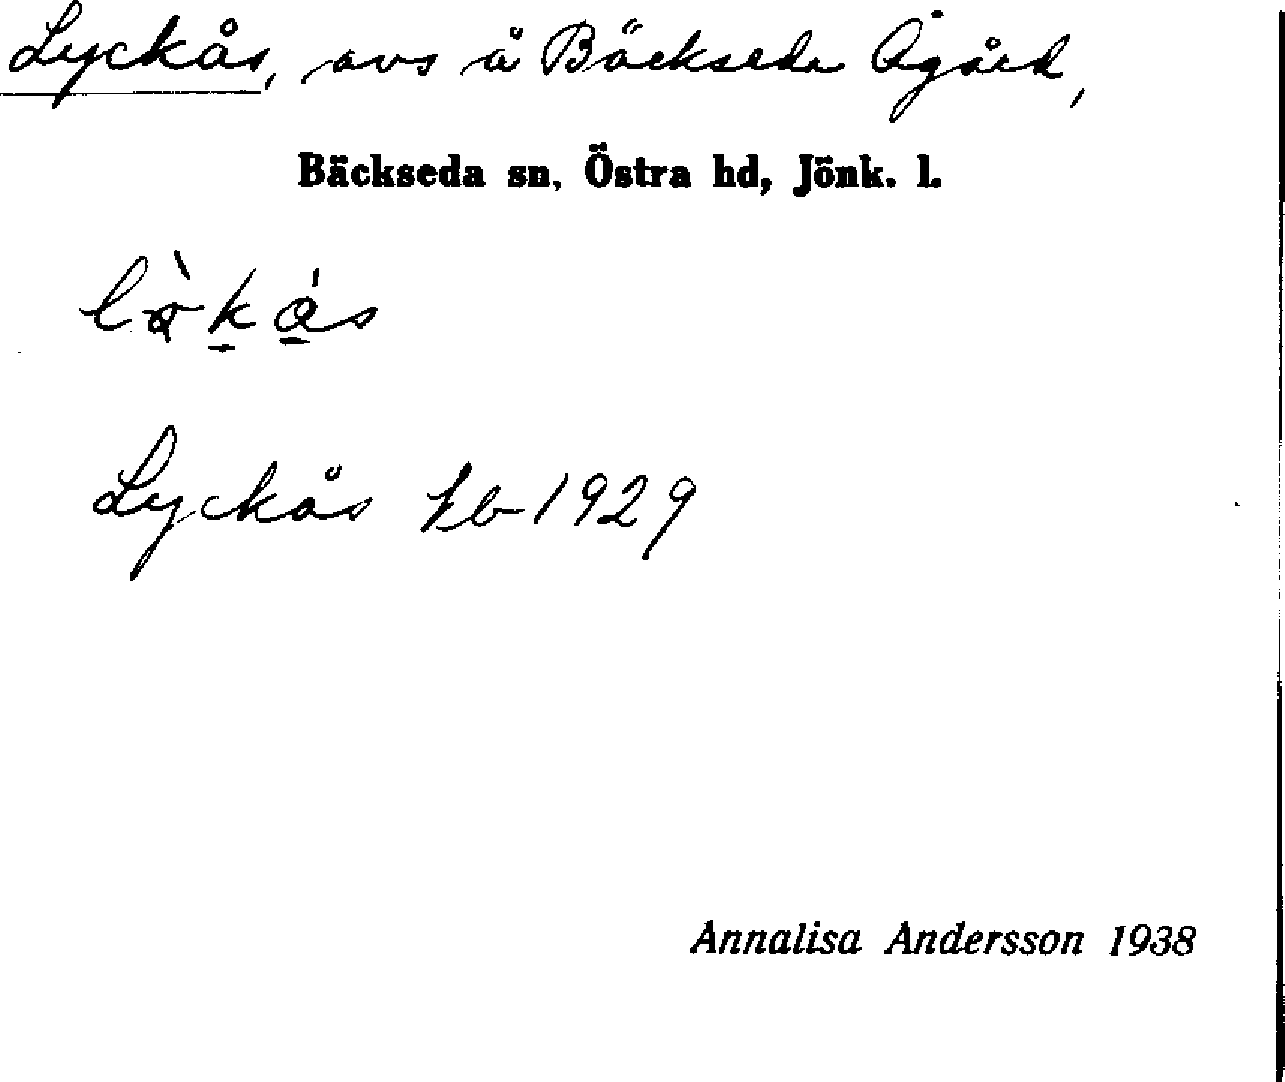 Lyckås, avs å Bäckseda Ågård,
Bäckseda sn, Östra hd, Jönk. l.
Lyckås Jb 1929
Annalisa Andersson 1938